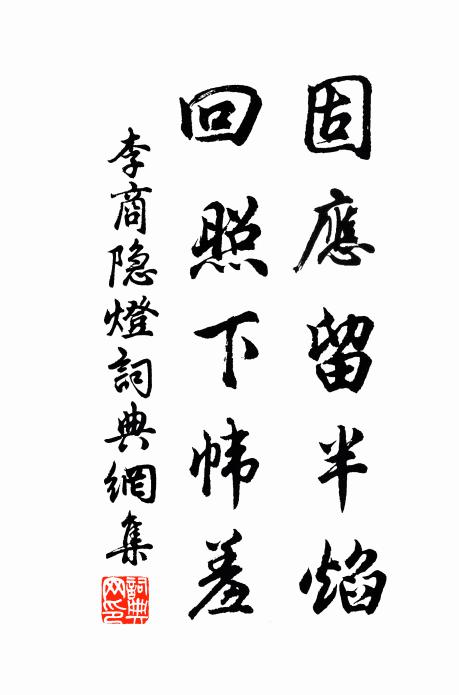 固應留半焰
回照下幃羞
李商隐燈詞典網集
詞典网印